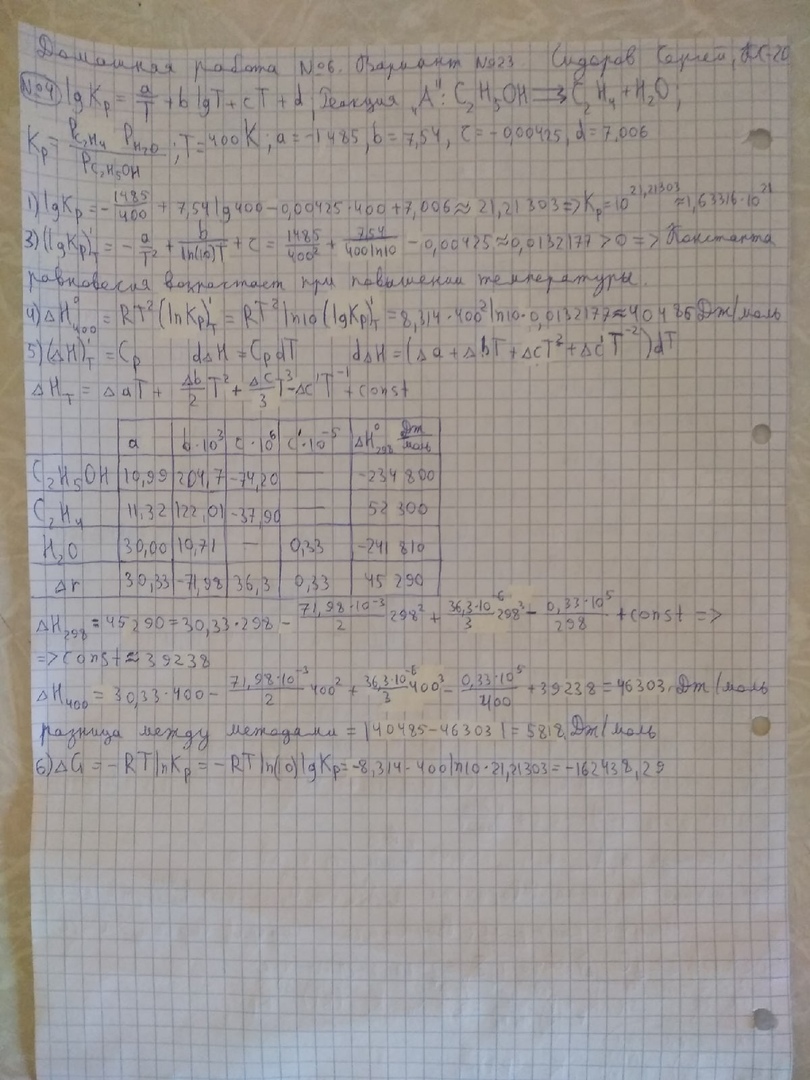 Домашная работа №6. Вариант №23. Сидоров Сергей, КС-20
№4 lgKp = a/T + b lgT + cT + d, Реакция "А": C₂H₅OH ⇄ C₂H₄ + H₂O;
Kp = P_C₂H₄ P_H₂O / P_C₂H₅OH; T = 400K; a = -1485, b = 7,54, c = -0,00425, d = 7,006
1) lgKp = -1485/400 + 7,54 lg400 - 0,00425·400 + 7,006 ≈ 21,21303 => Kp = 10^21,21303 ≈ 1,63316·10²¹
3) (lgKp)'_T = -a/T² + b/(ln(10)T) + c = 1485/400² + 7,54/(400 ln10) - 0,00425 ≈ 0,0132177 > 0 => Константа
равновесия возрастает при повышении температуры.
4) ΔH°₄₀₀ = RT²(lnKp)'_T = RT² ln10 (lgKp)'_T = 8,314·400² ln10·0,0132177 ≈ 40486 Дж/моль
5) (ΔH)'_T = Cp dΔH = CpdT dΔH = (Δa + ΔbT + ΔcT² + Δc'T⁻²)dT
ΔH_T = ΔaT + Δb/2 T² + Δc/3 T³ - Δc'T⁻¹ + const
a b·10³ c·10⁶ c'·10⁻⁵ ΔH°₂₉₈ Дж/моль
C₂H₅OH 10,99 204,7 -74,20 — -234 800
C₂H₄ 11,32 122,01 -37,90 — 52 300
H₂O 30,00 10,71 — 0,33 -241 810
Δr 30,33 -71,98 36,3 0,33 45 290
ΔH₂₉₈ = 45290 = 30,33·298 - 71,98·10⁻³/2 298² + 36,3·10⁻⁶/3 298³ - 0,33·10⁵/298 + const =>
=> const ≈ 39238
ΔH₄₀₀ = 30,33·400 - 71,98·10⁻³/2 400² + 36,3·10⁻⁶/3 400³ - 0,33·10⁵/400 + 39238 = 46303 Дж/моль
разница между методами = |40485 - 46303| = 5818 Дж/моль
6) ΔG = -RT lnKp = -RT ln(10) lgKp = -8,314·400 ln10·21,21303 = -162438,29